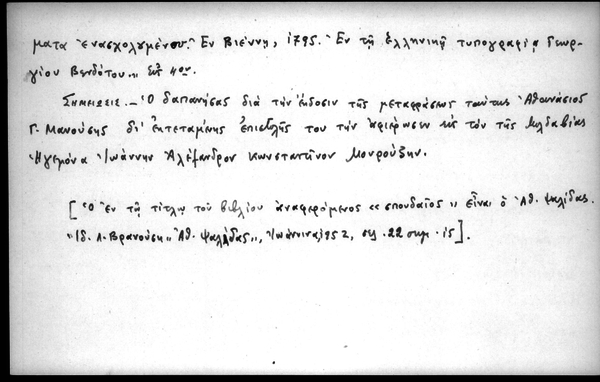 ματα ἐνασχολουμένου. Ἐν Βιέννῃ, 1795. Ἐν τῇ ἑλληνικῇ τυπογραφίᾳ Γεωρ-
γίου Βενδότου,, εἰς 4ον.
Σημείωσις._ Ὁ δαπανήσας διὰ τὴν ἔκδοσιν τῆς μεταφράσεως ταύτης Ἀθανάσιος
Γ. Μανούσης δι' ἐκτεταμένης ἐπιστολῆς του τὴν ἀφιέρωσεν εἰς τὸν τῆς Μολδαβίας
Ἡγεμόνα Ἰωάννην Ἀλέξανδρον Κωνσταντῖνον Μουρούζην.
[Ὁ ἐν τῇ τίτλῳ τοῦ βιβλίου ἀναφερόμενος «σπουδαῖος» εἶναι ὁ Ἀθ. Ψαλίδας.
Ἰδ. Λ. Βρανούση „Ἀθ. Ψαλίδας", Ἰωάννινα, 1952, σελ. 22 σημ. 15].